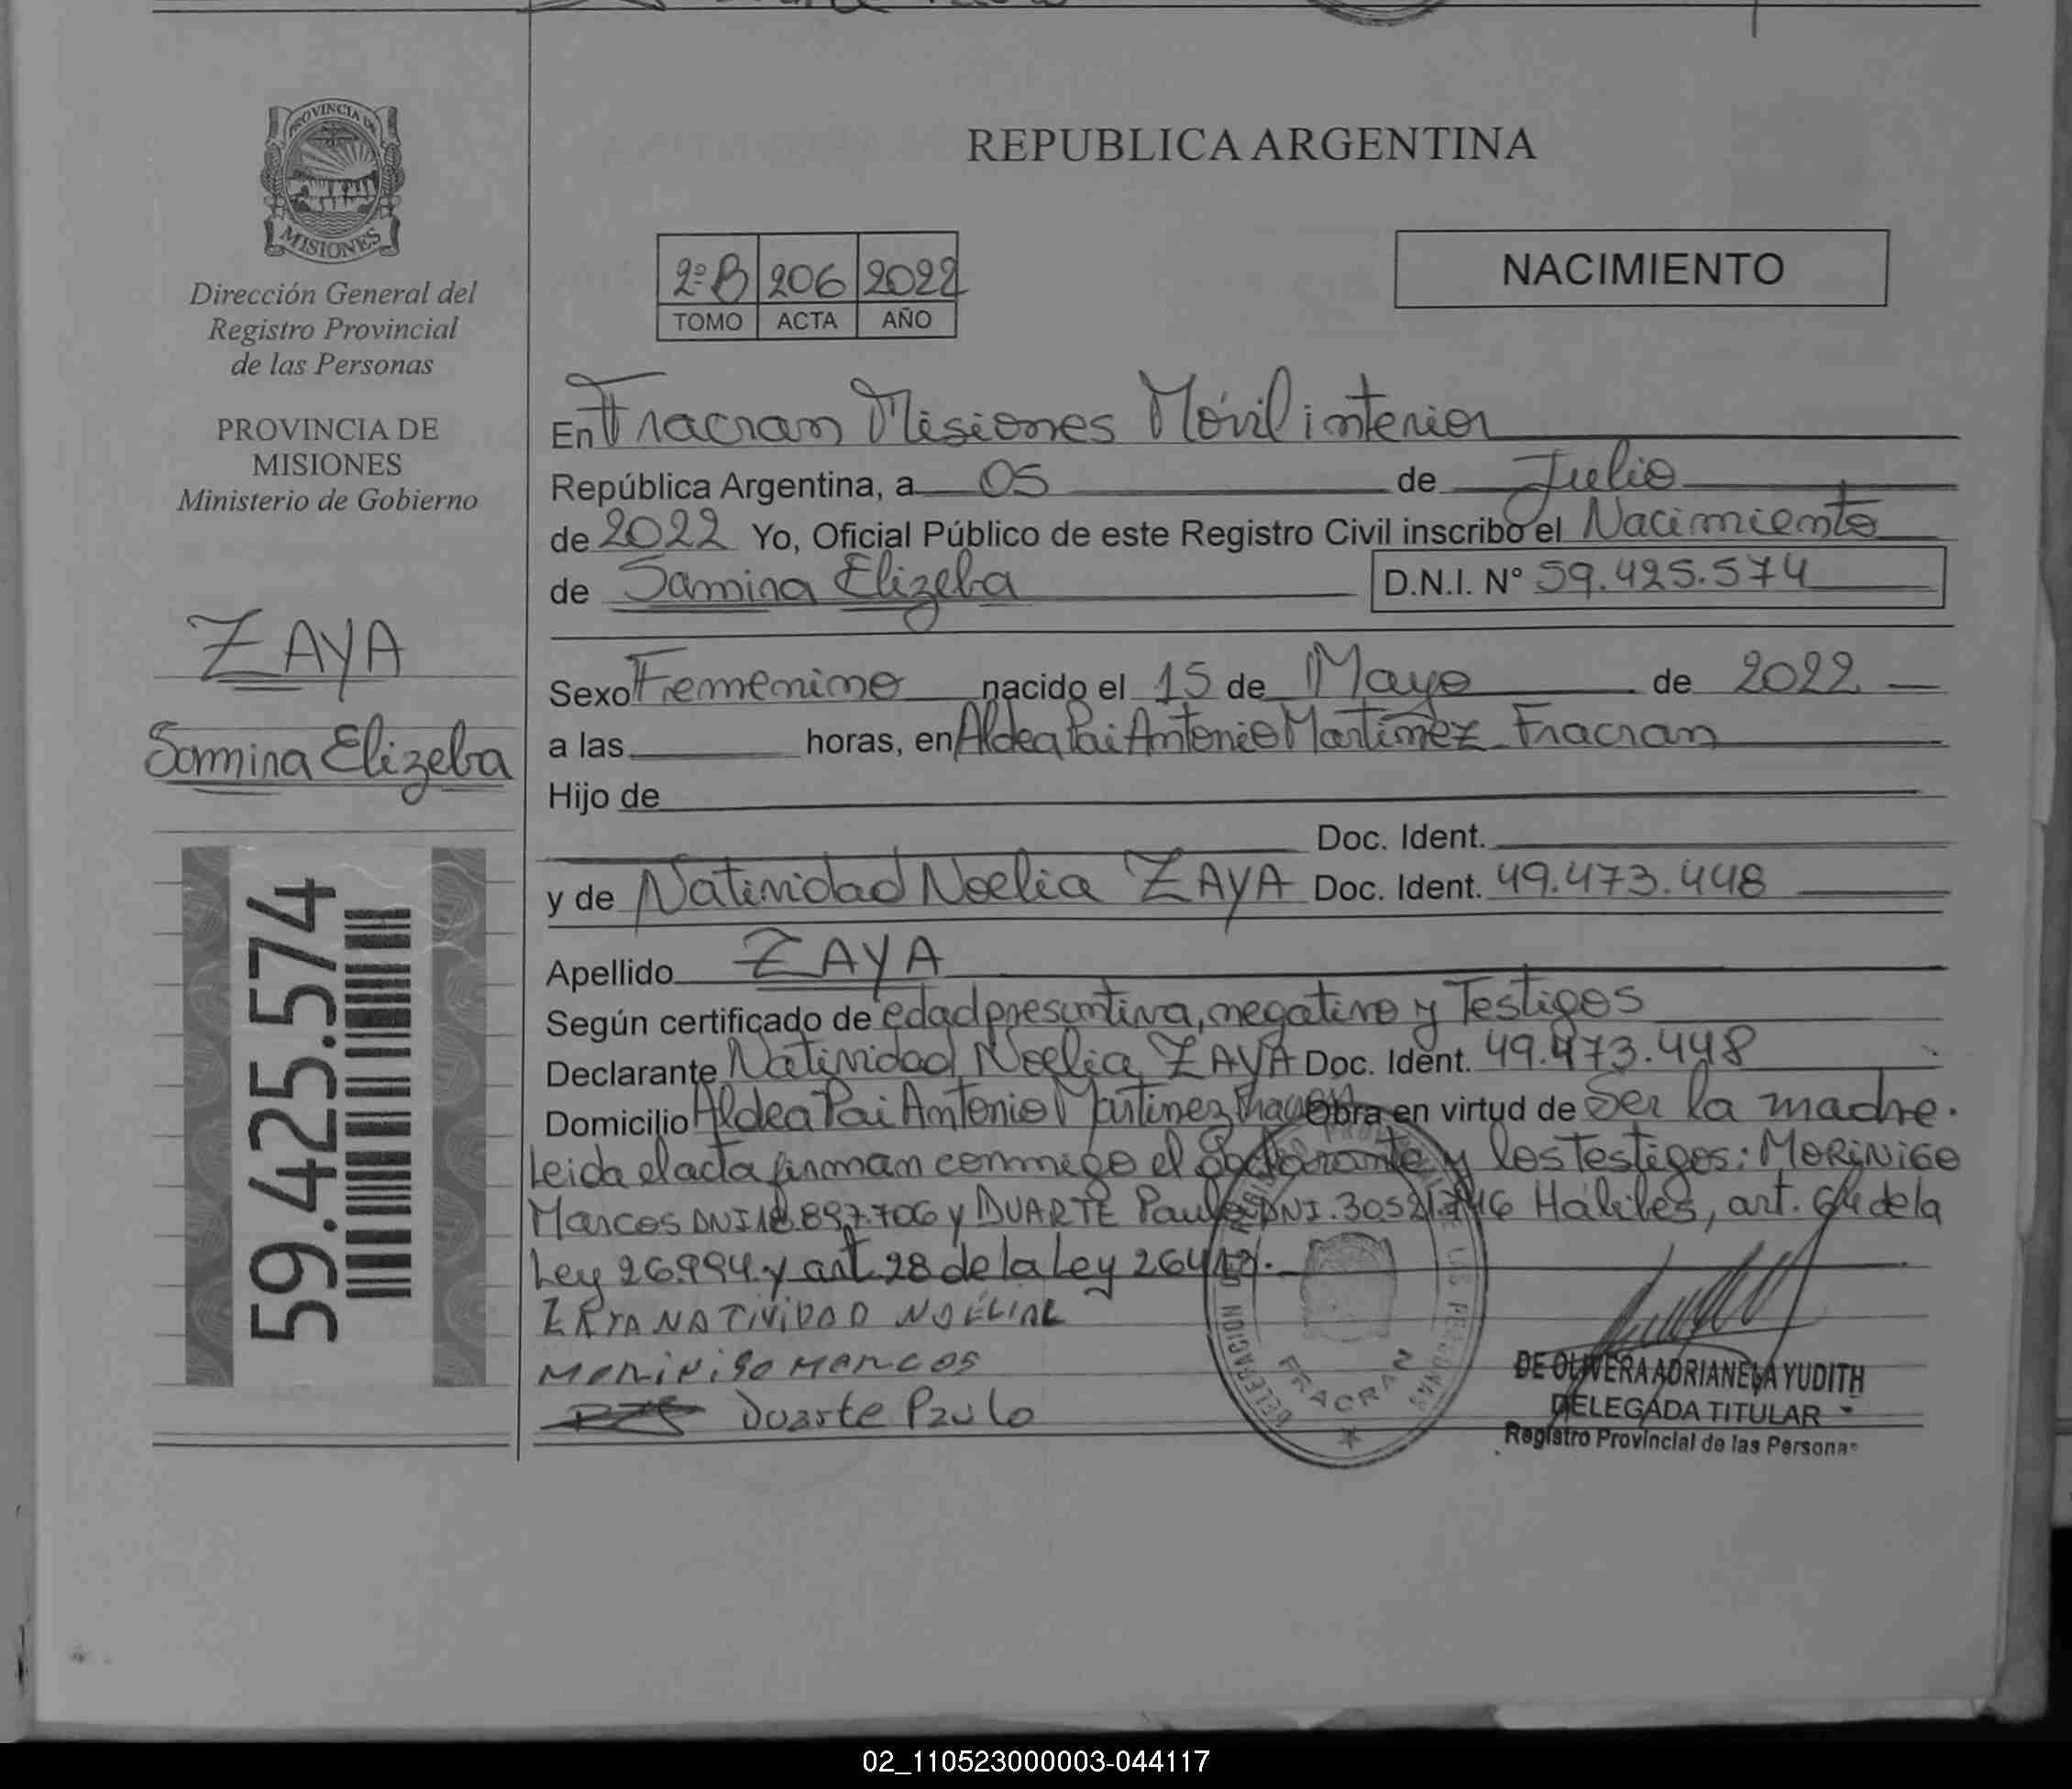 PROVINCIA DE
MISIONES
Dirección General del
Registro Provincial
de las Personas
PROVINCIA DE
MISIONES
Ministerio de Gobierno
ZAYA
Samina Elizeba
59.425.574
REPUBLICA ARGENTINA
2º B 206 2022
TOMO ACTA AÑO
NACIMIENTO
En Fracran Misiones Móvil interior
República Argentina, a 05 de Julio
de 2022 Yo, Oficial Público de este Registro Civil inscribo el Nacimiento
de Samina Elizeba D.N.I. Nº 59.425.574
Sexo Femenino nacido el 15 de Mayo de 2022
a las horas, en Aldea Pai Antonio Martinez Fracran
Hijo de
Doc. Ident.
y de Natividad Noelia ZAYA Doc. Ident. 49.473.448
Apellido ZAYA
Según certificado de edad presuntiva, negativo y Testigos
Declarante Natividad Noelia ZAYA Doc. Ident. 49.473.448
Domicilio Aldea Pai Antonio Martinez Fracran Obra en virtud de Ser la madre.
Leida el acta firman conmigo el declarante y los Testigos: MORINIGO
Marcos DNI 18.897.706 y DUARTE Paulo DNI. Hábiles, art. 64 de la
Ley 26.994 y art. 28 de la Ley 26413.
ZAYA NATIVIDAD NOELIA
MORINIGO MARCOS
Duarte Paulo
DELEGACION
FRACRAN
DE OLIVERA ADRIANELA YUDITH
DELEGADA TITULAR
Registro Provincial de las Personas
02_110523000003-044117